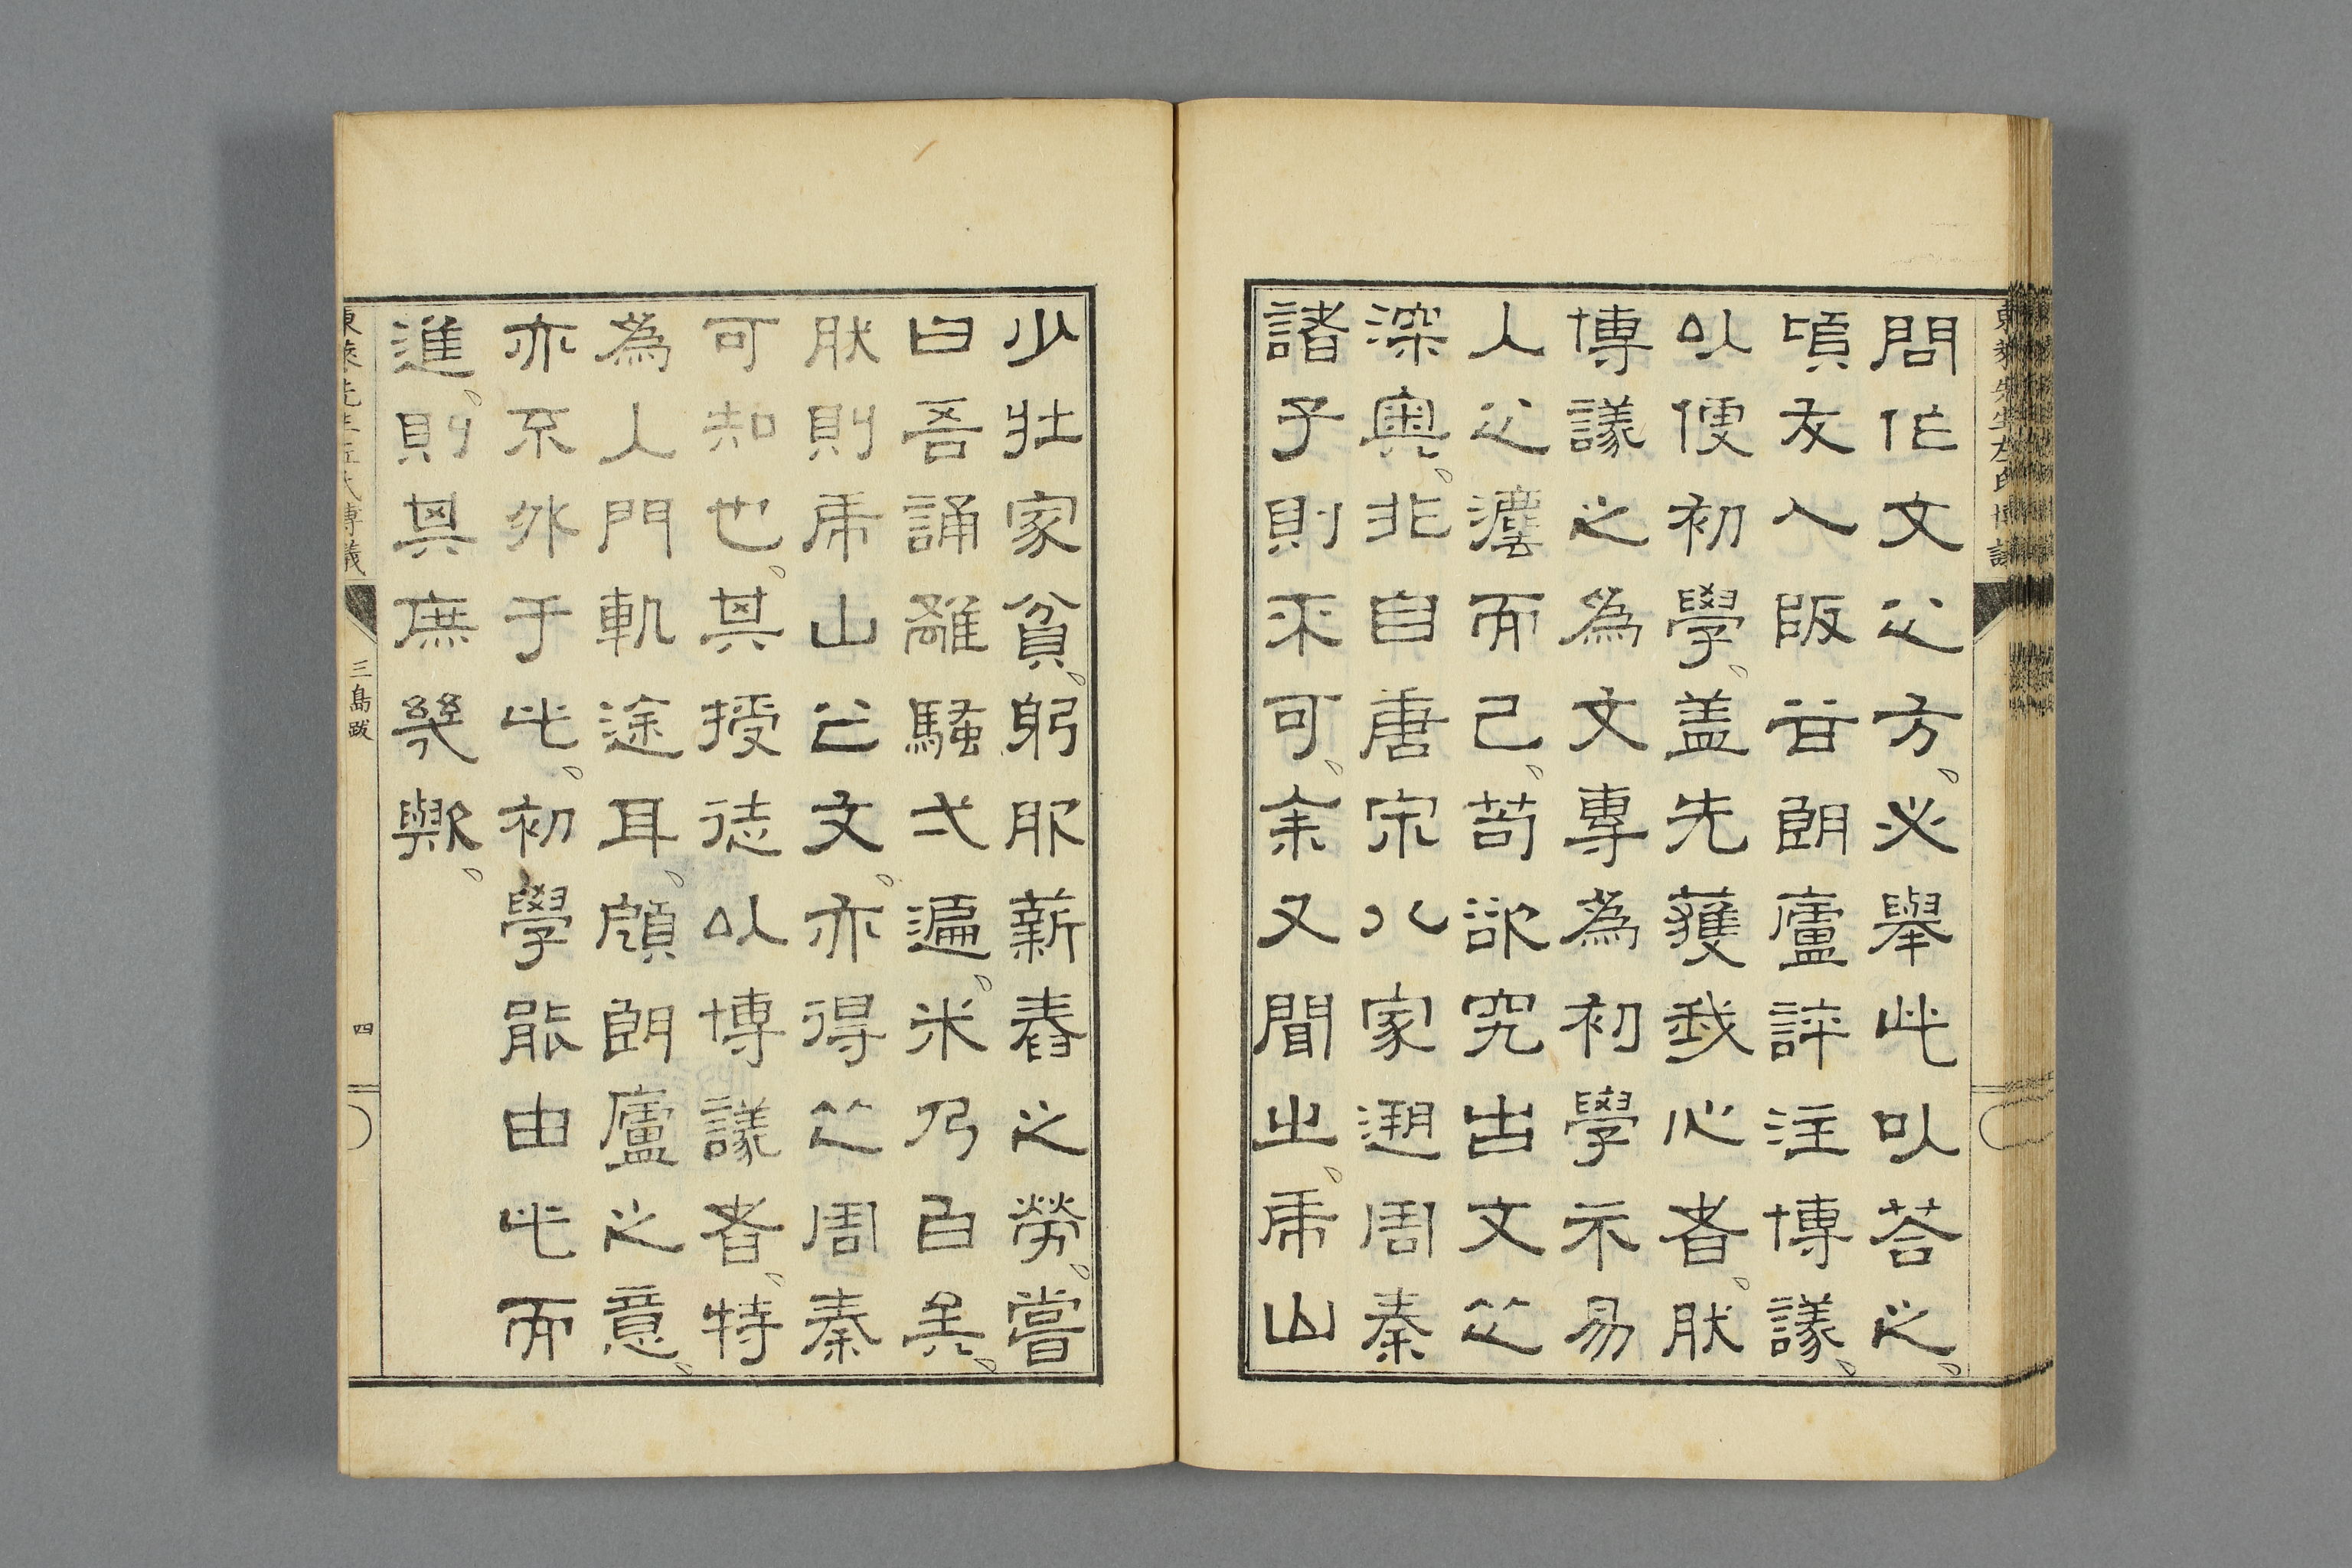 問作文之方。必舉此以荅之。
頃友人阪谷朗廬評注博議。
以便初學。盖先獲我心者。然
博議之為文專為初學示易
人之灋而已。苟欲究古文之
深奧。非自唐宋八家遡周秦
諸子則不可。余又聞之。虎山
少壯家貧。躬服薪舂之勞。嘗
曰吾誦離騷弌遍。米乃白矣。
然則虎山之文。亦得之周秦
可知也。其授徒以博議者。特
為人門軌途耳。顧朗廬之意。
亦不外于此。初學能由此而
進。則其庶幾歟。
東萊先生左氏博議
三島跋
四